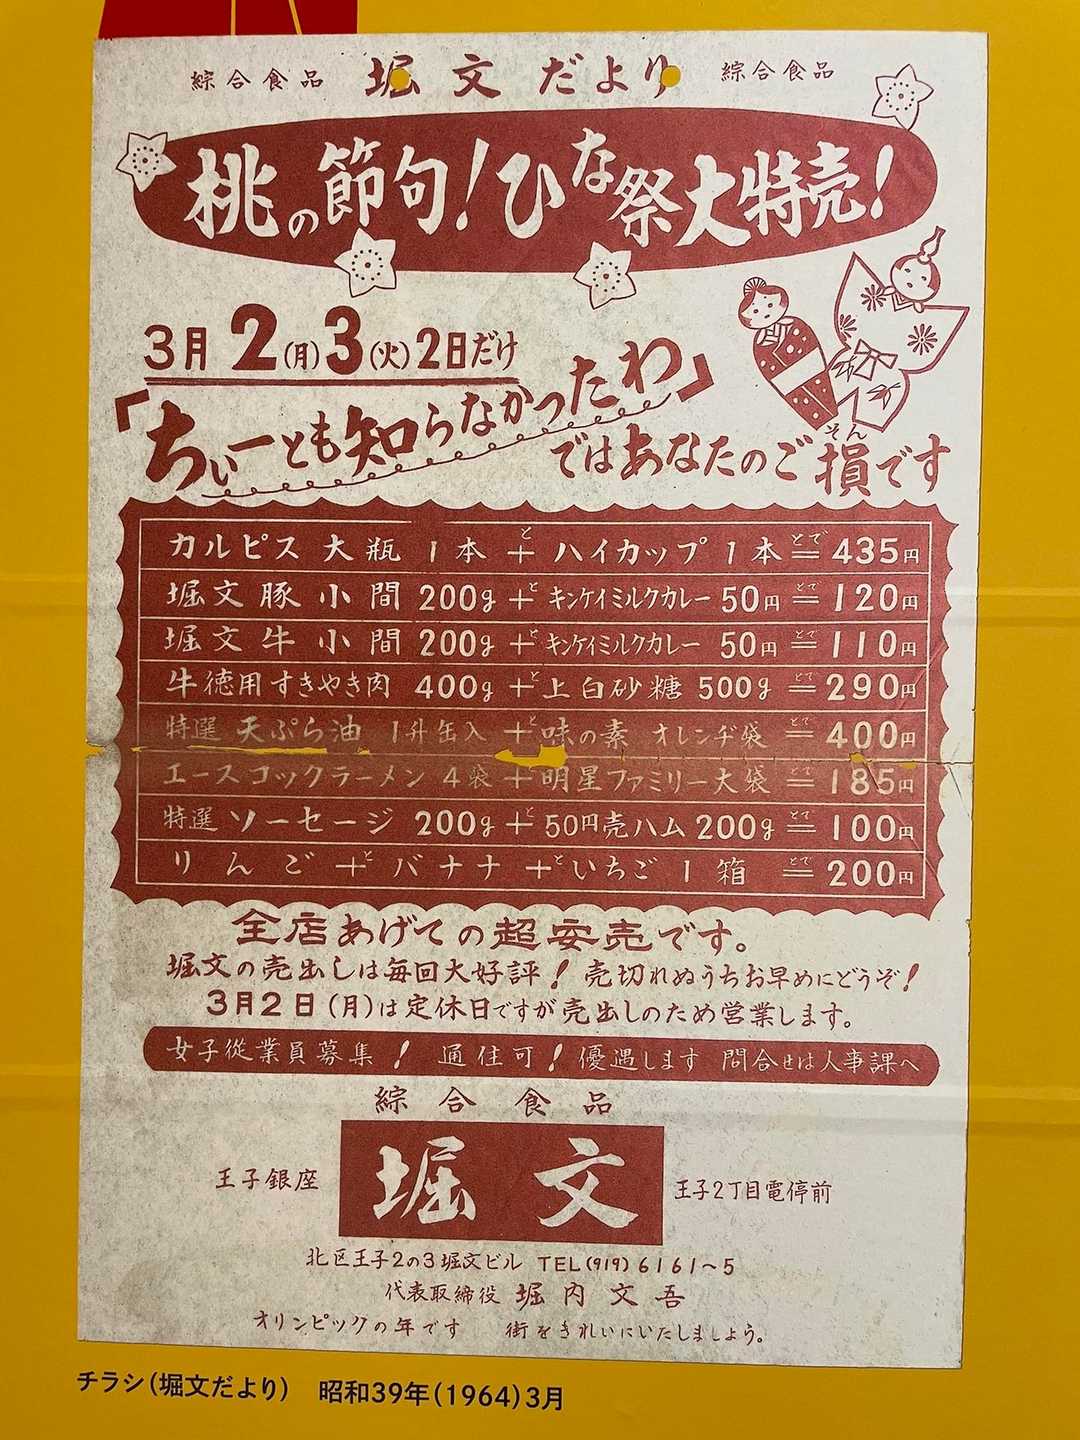 綜合食品 堀文だより 綜合食品
桃の節句!ひな祭大特売!
3月2(月)3(火)2日だけ
「ちぃーとも知らなかったわ」
ではあなたのご損です
そん
カルピス 大瓶 1本 +と ハイカップ 1本 =とで 435円
堀文豚小間 200g +と キンケイミルクカレー 50円 =とで 120円
堀文牛小間 200g +と キンケイミルクカレー 50円 =とで 110円
牛徳用すきやき肉 400g +と 上白砂糖 500g =とで 290円
特選 天ぷら油 1升缶入 +と 味の素 オレンヂ袋 =とで 400円
エースコックラーメン 4袋 + 明星ファミリー大袋 =とで 185円
特選 ソーセージ 200g +と 50円売ハム 200g =とで 100円
りんご +と バナナ +と いちご 1箱 =とで 200円
全店あげての超安売です。
堀文の売出しは毎回大好評! 売切れぬうちお早めにどうぞ!
3月2日(月)は定休日ですが売出しのため営業します。
女子従業員募集! 通住可! 優遇します 問合せは人事課へ
綜合食品
王子銀座 堀文 王子2丁目電停前
北区王子2の3堀文ビル TEL(919)6161〜5
代表取締役 堀内文吾
オリンピックの年です 街をきれいにいたしましょう。
チラシ(堀文だより) 昭和39年(1964)3月